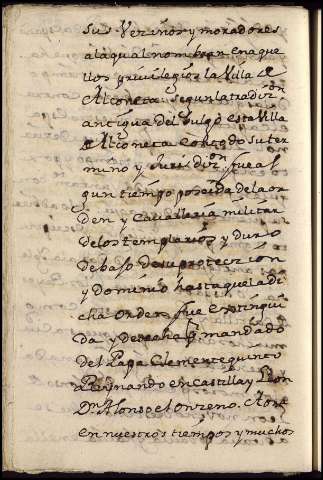 sus Vezinos y moradores
a la qual nombran en aque
llos privilegios la Villa de
Alconeta. segun la tradizon
antigua del Vulgo esta Villa
de Alconeta con todo su ter
mino y Jurisdizon fue al
gun tiempo poseida de la or
den y Cavalleria militar
de los templarios y durò
debaxo de su proteccion
y dominio hasta que la di
cha Orden fue extingui
da y desecha pr mandado
del Papa Clemente quinto
Reynando en Castilla y Leon
Dn Alonso el Onzeno.
en nuestros tiempos y muchos